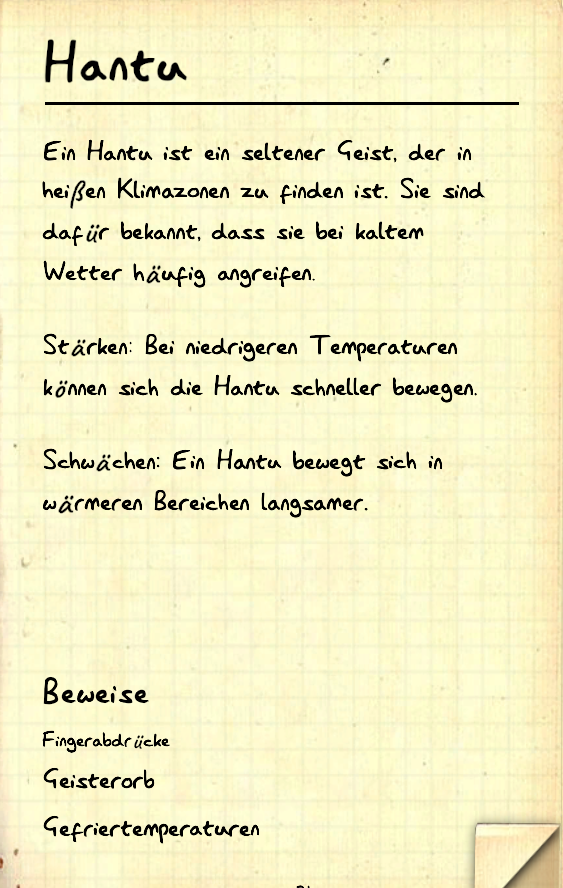 Hantu
Ein Hantu ist ein seltener Geist, der in
heißen Klimazonen zu finden ist. Sie sind
dafür bekannt, dass sie bei kaltem
Wetter häufig angreifen.
Stärken: Bei niedrigeren Temperaturen
können sich die Hantu schneller bewegen.
Schwächen: Ein Hantu bewegt sich in
wärmeren Bereichen langsamer.
Beweise
Fingerabdrücke
Geisterorb
Gefriertemperaturen